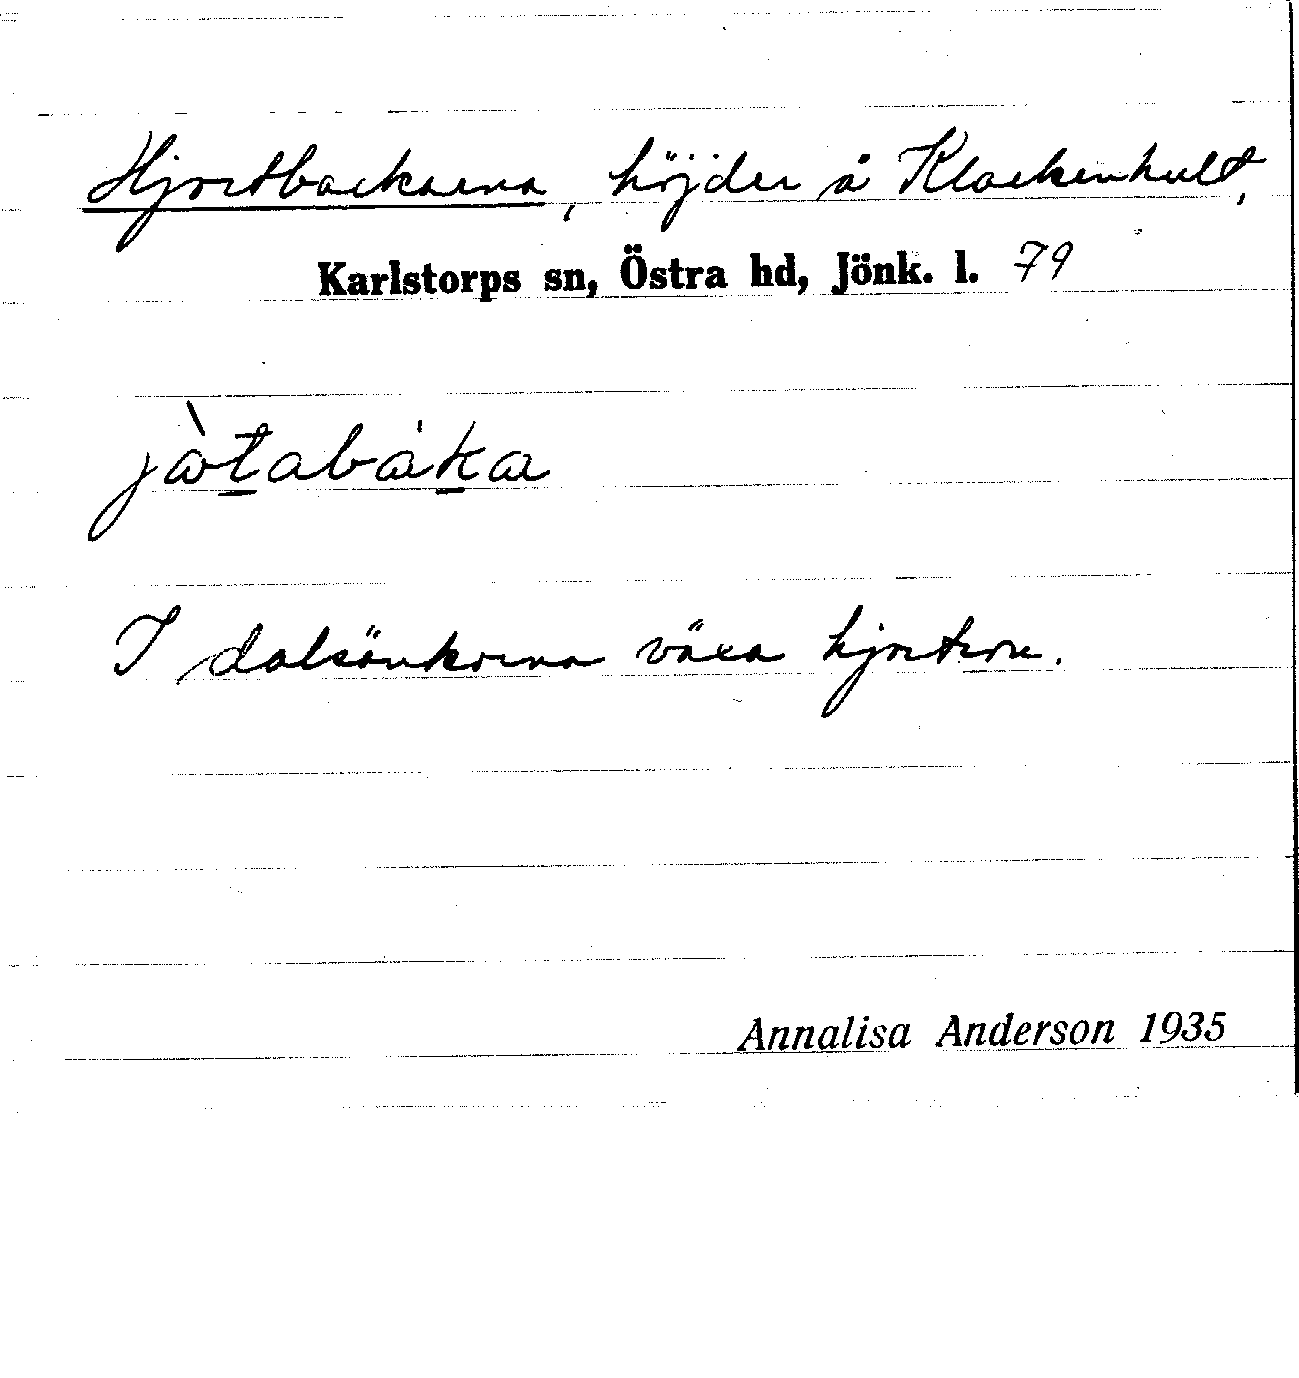 Hjortbackarna, höjder å Klackenhult,
Karlstorps sn, Östra hd, Jönk. l. 79
jàtabáka
I dalsänkorna växa hjortron.
Annalisa Anderson 1935